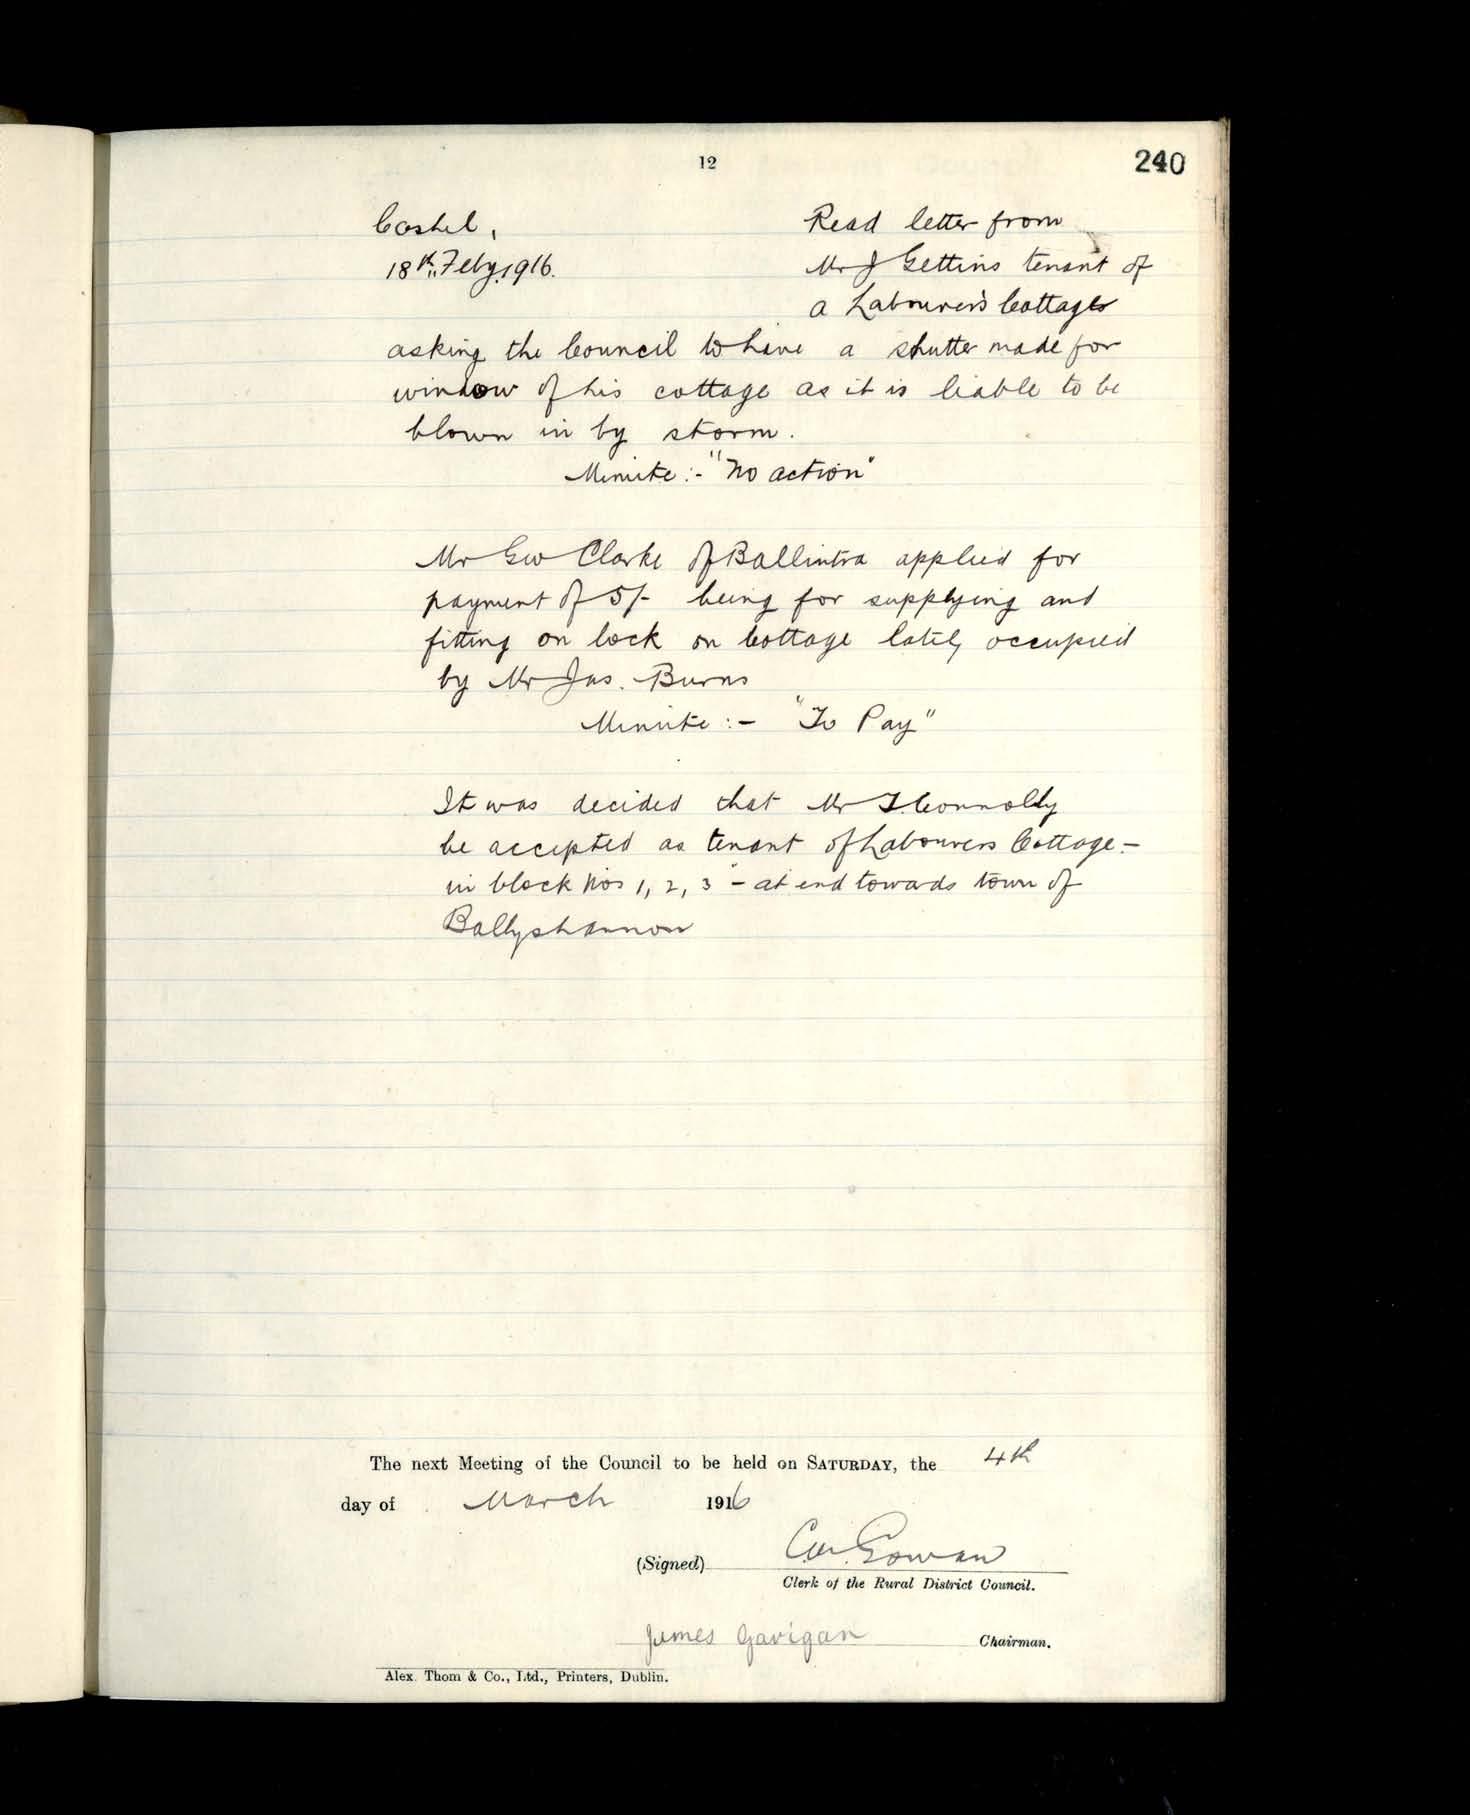 12
240
Cashel,
18th, Feby. 1916.
Read letter from
Mr J Gettins tenant of
a Labourer's Cottage
asking the Council to have a shutter made for
window of his cottage as it is liable to be
blown in by storm.
Minute :- "No action"
Mr Geo Clarke of Ballintra applied for
payment of 5/- being for supplying and
fitting on lock on Cottage lately occupied
by Mr Jas. Burns
Minute :- "To Pay"
It was decided that Mr T. Connolly
be accepted as tenant of Labourers Cottage -
in block Nos 1, 2, 3 - at end towards town of
Ballyshannon
The next Meeting of the Council to be held on SATURDAY, the 4th
day of March 1916
(Signed) Gowan
Clerk of the Rural District Council.
James Gavigan Chairman.
Alex. Thom & Co., Ltd., Printers, Dublin.